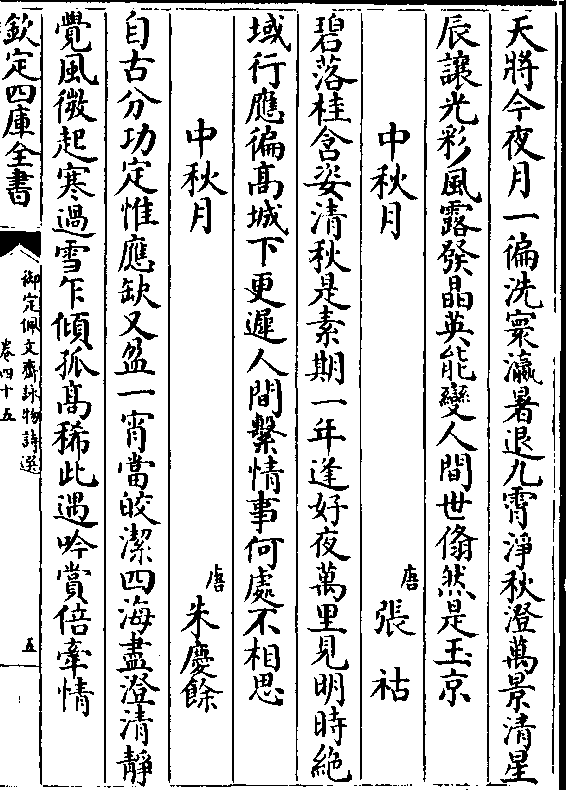 天將今夜月一徧洗寰瀛暑退九霄淨秋澄萬景清星
辰讓光彩風露發晶英能變人間世翛然是玉京
中秋月 唐 張祜
碧落桂含姿清秋是素期一年逢好夜萬里見明時絶
域行應徧高城下更遲人間繫情事何處不相思
中秋月 唐 朱慶餘
自古分功定惟應缺又盈一宵當皎潔四海盡澄清靜
覺風微起寒過雪乍傾孤高稀此遇吟賞倍牽情
欽定四庫全書
御定佩文齋詠物詩選
卷四十五
五